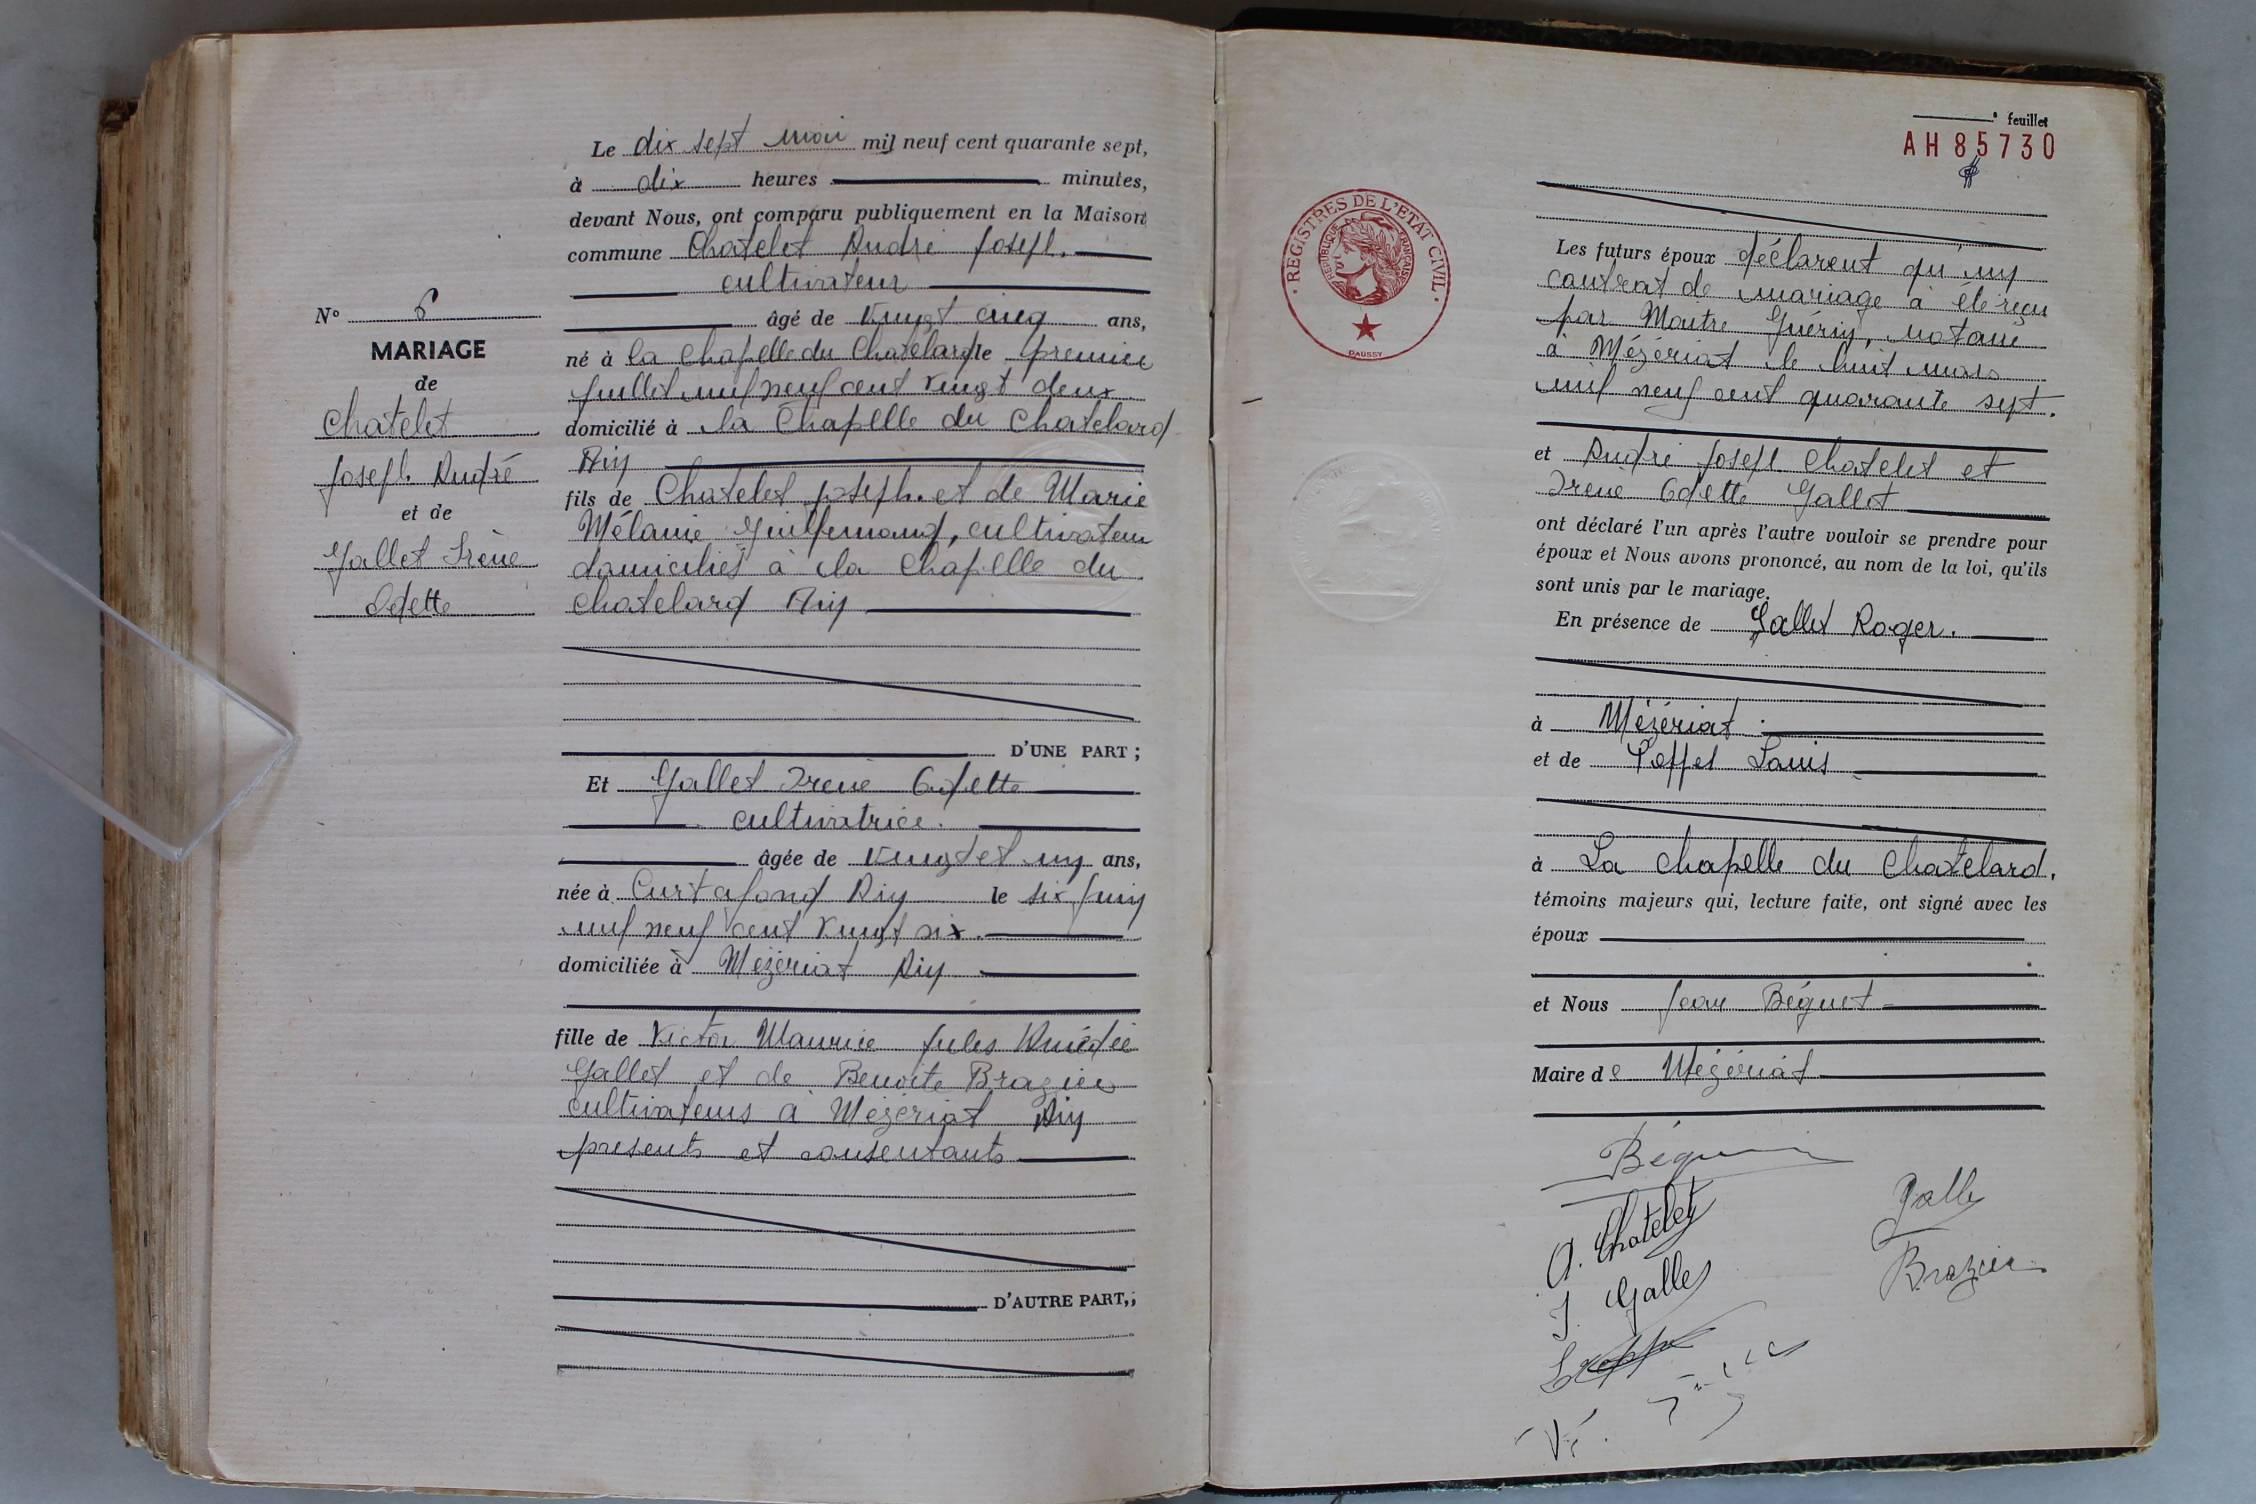 Le dix sept mai mil neuf cent quarante sept,
à dix heures minutes,
devant Nous, ont comparu publiquement en la Maison
commune Chatelet André Joseph.
cultivateur
âgé de vingt cinq ans,
né à la Chapelle du Chatelard le premier
juillet mil neuf cent vingt deux
domicilié à la Chapelle du Chatelard
Ain
fils de Chatelet Joseph. et de Marie
Mélanie Guillemaud, cultivateur
domiciliés à la Chapelle du
Chatelard Ain
D'UNE PART ;
Et Gallet Irène Odette
cultivatrice.
âgée de vingt et un ans,
née à Curtafond Ain le six juin
mil neuf cent vingt six.
domiciliée à Mézériat Ain
fille de Victor Maurice Jules Amédée
Gallet et de Benoite Brazier
cultivateurs à Mézériat Ain
présents et consentants
D'AUTRE PART,;
N° 6
MARIAGE
de
Chatelet
Joseph André
et de
Gallet Irène
Odette
feuillet
AH 85730
REGISTRES DE L'ETAT CIVIL
REPUBLIQUE FRANÇAISE
DAUSSY
Les futurs époux déclarent qu'un
contrat de mariage a été reçu
par Maitre Guérin, notaire
à Mézériat le huit mars
mil neuf cent quarante sept.
et André Joseph Chatelet et
Irène Odette Gallet
ont déclaré l'un après l'autre vouloir se prendre pour
époux et Nous avons prononcé, au nom de la loi, qu'ils
sont unis par le mariage.
En présence de Gallet Roger.
à Mézériat.
et de Louis
à La Chapelle du Chatelard.
témoins majeurs qui, lecture faite, ont signé avec les
époux
et Nous Jean Béguet
Maire de Mézériat
A. Chatelet
I Gallet
Brazier